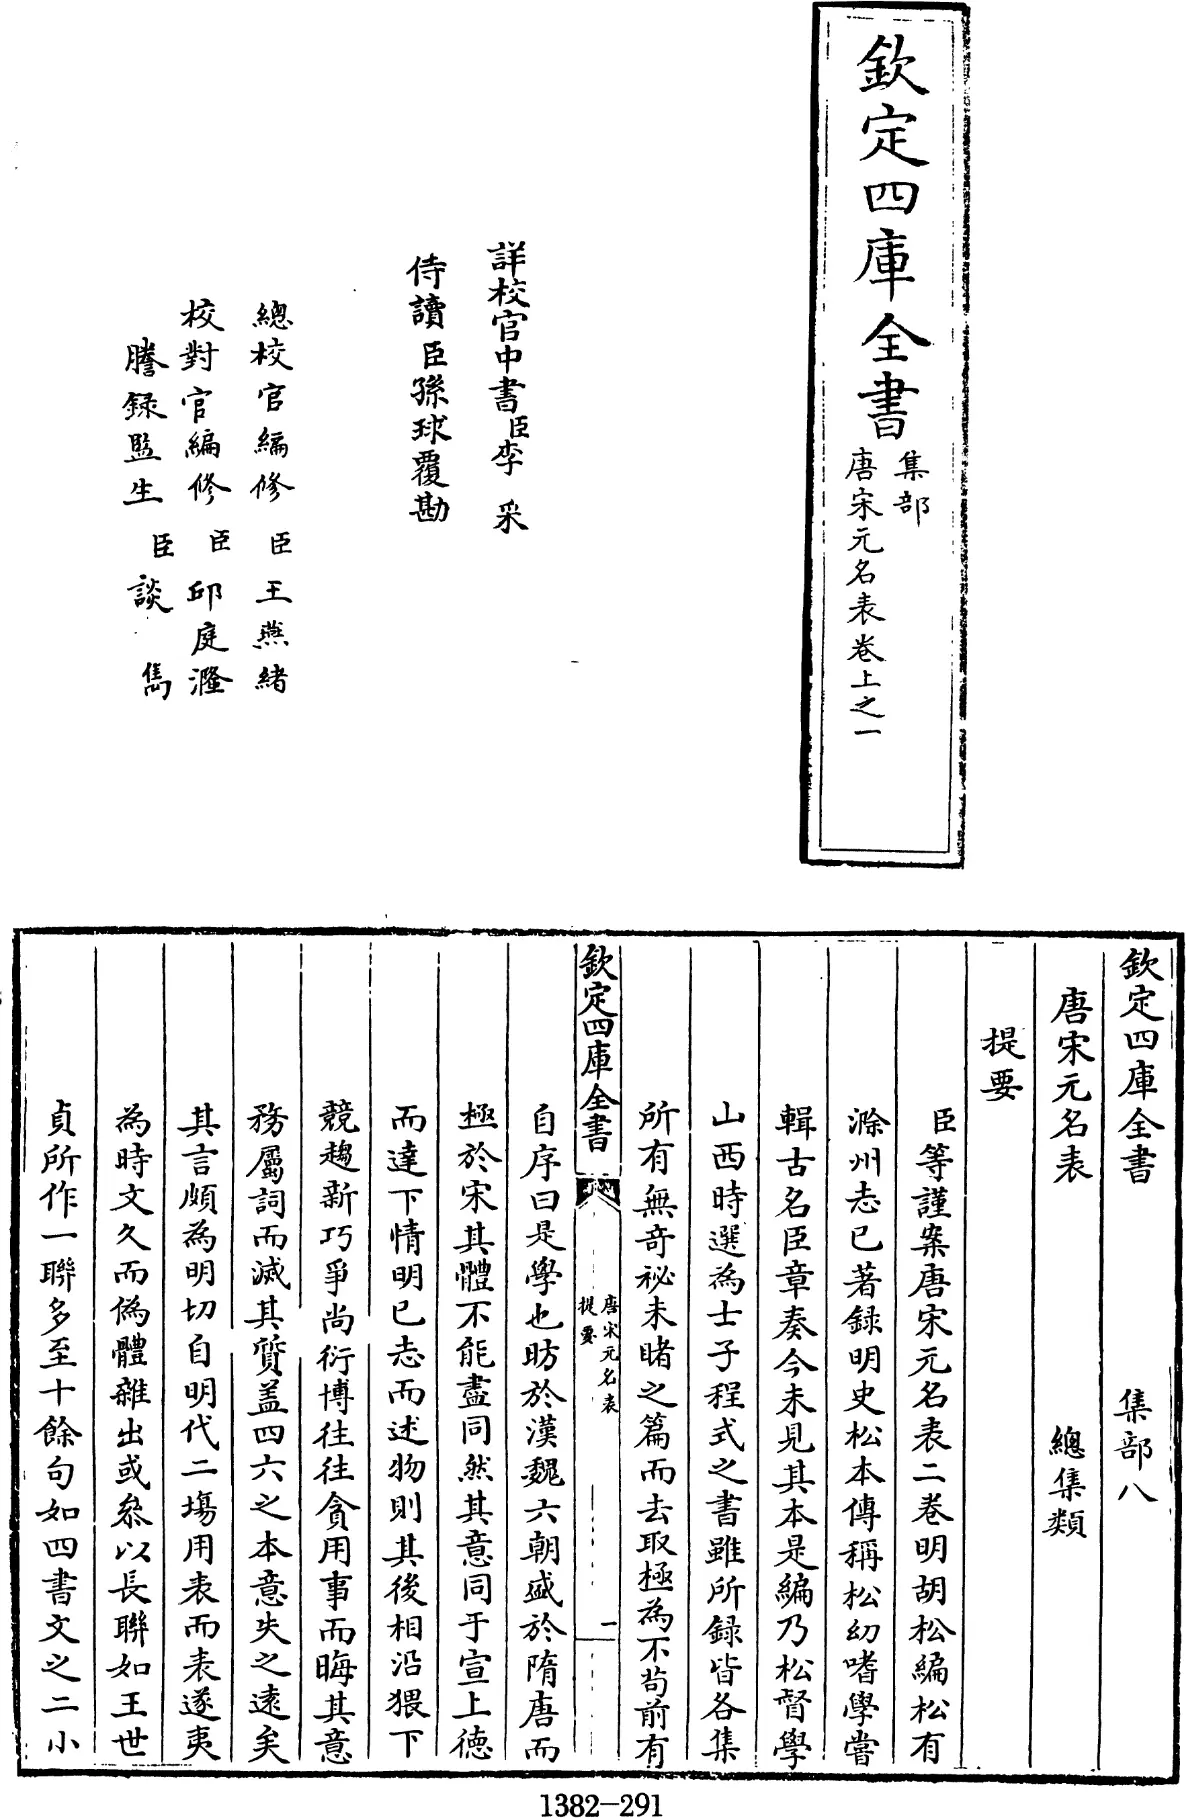 欽定四庫全書
集部
唐宋元名表卷上之一
詳校官中書臣李采
侍讀臣孫球覆勘
總校官編修臣王燕緒
校對官編修臣邱庭漋
謄録監生臣談雋
欽定四庫全書 集部八
唐宋元名表 總集類
提要
臣等謹案唐宋元名表二卷明胡松編松有
滁州志已著録明史松本傳稱松幼嗜學嘗
輯古名臣章奏今未見其本是編乃松督學
山西時選為士子程式之書雖所録皆各集
所有無奇祕未睹之篇而去取極為不茍前有
欽定四庫全書
唐宋元名表
提要
一
自序曰是學也昉於漢魏六朝盛於隋唐而
極於宋其體不能盡同然其意同于宣上德
而達下情明已志而述物則其後相沿猥下
競趨新巧爭尚衍博往往貪用事而晦其意
務屬詞而滅其質盖四六之本意失之遠矣
其言頗為明切自明代二場用表而表遂夷
為時文久而偽體雜出或叅以長聯如王世
貞所作一聯多至十餘句如四書文之二小
1382-291